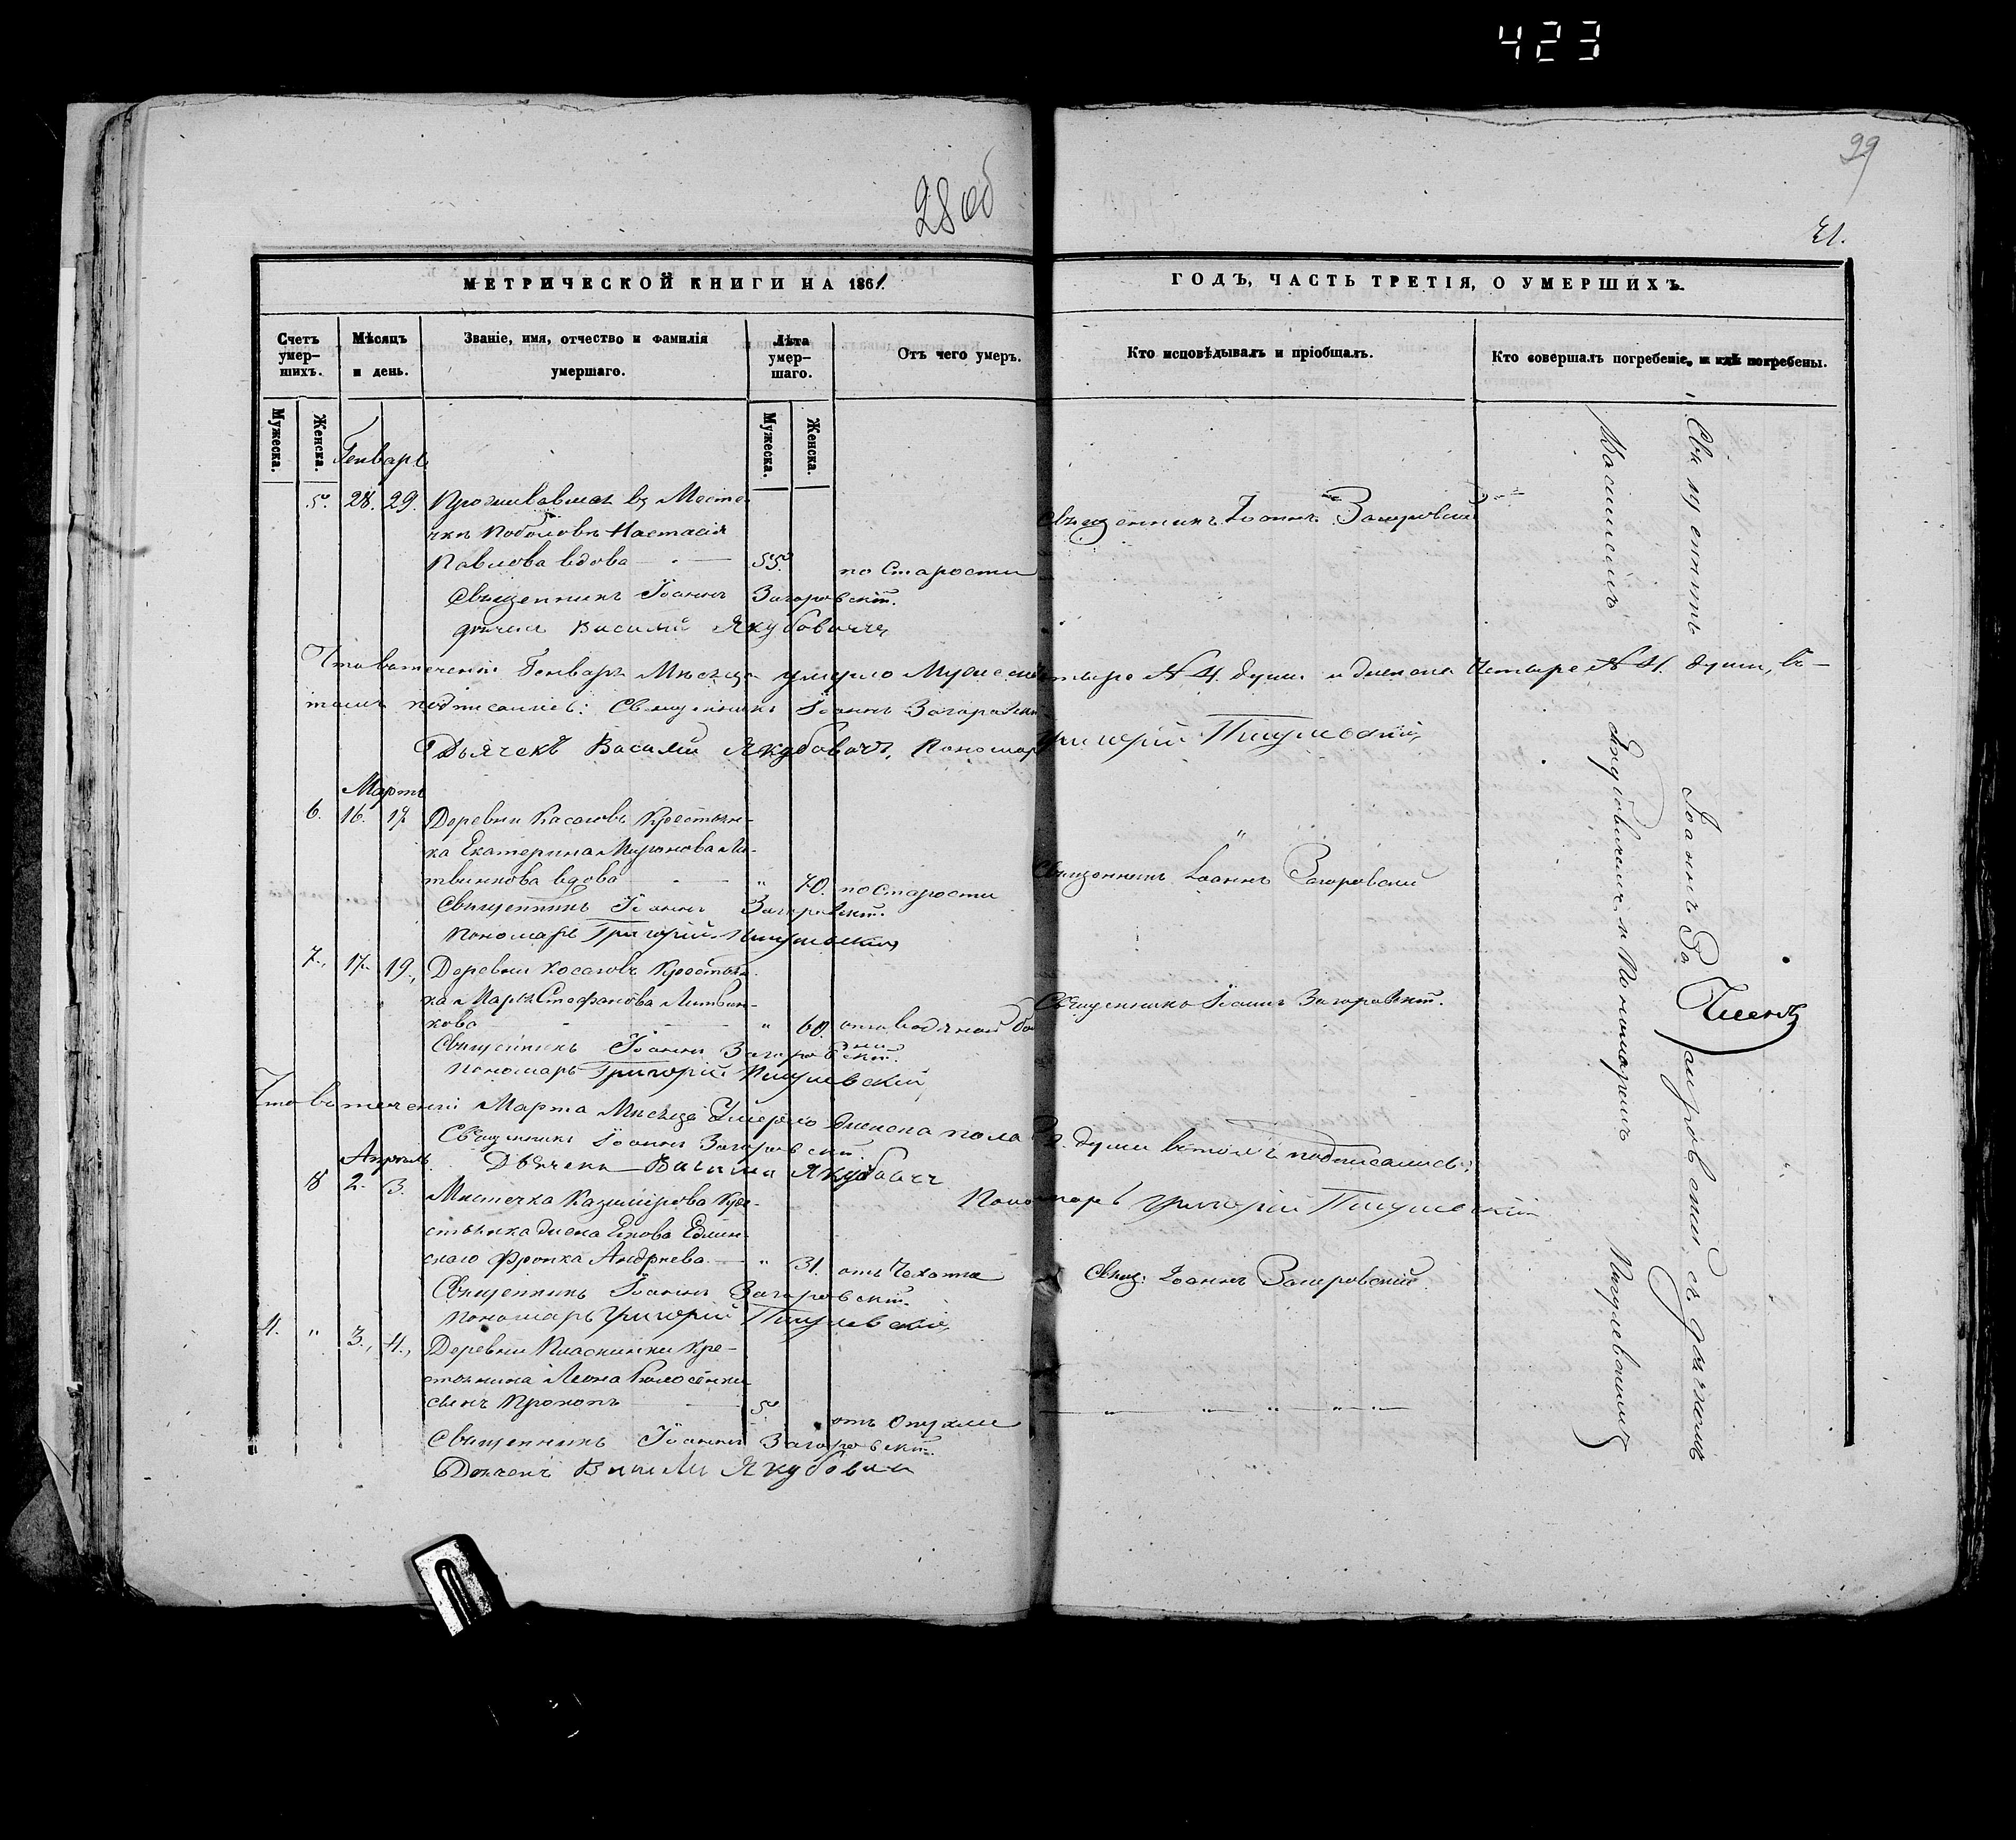 423
28 об
29
21.
МЕТРИЧЕСКОЙ КНИГИ НА 1861
ГОДЪ, ЧАСТЬ ТРЕТІЯ, О УМЕРШИХЪ.
Счетъ умер-шихъ.
Мѣсяцъ и день.
Званіе, имя, отчество и фамилія умершаго.
Лѣта умер-шаго.
Отъ чего умеръ.
Кто исповѣдывалъ и пріобщалъ.
Кто совершалъ погребеніе, и гдѣ погребены.
Мужеска.
Женска.
Мужеска.
Женска.
Генварь
5. 28. 29. Проживавшая въ Месте-
чкѣ Поболовѣ Настасія
Павлова вдова — 55. по Старости
Священникъ Іоаннъ Загоровскій
Священникъ Іоаннъ Загоровскій.
дьячекъ Василій Якубовичъ
Что въ теченіи Генваря Мѣсяца умерло Мужеска четыре № 4. души и женска Четыре № 4. души, въ-
томъ подписались: Священникъ Іоаннъ Загоровскій
Дьячекъ Василій Якубовичъ, Пономарь Григорій Пигулевскій,
Мартъ
6. 16. 17 Деревни Касаковъ Крестьян-
ка Екатерина Миронова Ли-
твинкова вдова — " 70. по Старости
Священникъ Іоаннъ Загоровскій
Священникъ Іоаннъ Загоровскій.
Пономарь Григорій Пигулевскій
7., 17. 19., Деревни Косаковъ Крестьян-
ка Марья Стефанова Литвин-
кова — " 60. отъ водяной бо
зни
Священникъ Іоаннъ Загоровскій.
Священникъ Іоаннъ Загоровскій.
Пономарь Григорій Пигулевскій
Что въ теченіи Марта Мѣсяца Умерло женска пола 2. души въ томъ подписались:
Священникъ Іоаннъ Загоровскій
Дьячекъ Василій Якубовичъ
Пономарь Григорій Пигулевскій
Апрѣль
8 2. 3. Мистечка Казимірова Кре-
стьянка жена
Франка Андреева — " 31. отъ Чахотки
Свящ: Іоаннъ Загоровскій
Священникъ Іоаннъ Загоровскій.
Пономарь Григорій Пигулевскій,
4. " 3., 4., Деревни Пласкинки Кре-
стьянина Леона
сынъ Прокопъ — 5. отъ Опухли
— " — " — " — " —
Священникъ Іоаннъ Загоровскій.
Дьячекъ Василій Якубовичъ
Священникъ Іоаннъ Загоровскій съ дьячкомъ
Василіемъ Якубовичемъ и Пономаремъ Пигулевскимъ